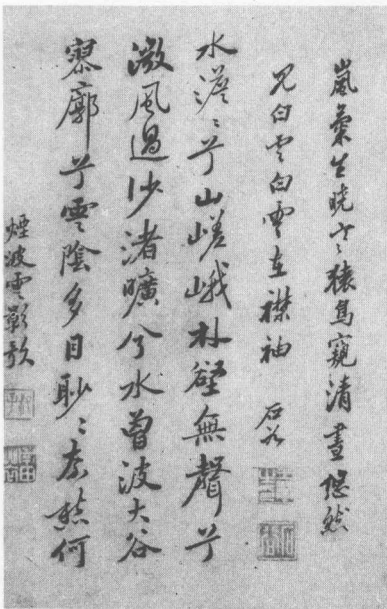 嵐氣生曉寒猿鳥窺清晝悠然
見白雲白雲在襟袖 石谷
水澹〻兮山嵯峨林壑無聲兮
微風過沙渚曠兮水曾波大谷
寥廓兮雲陰多目眇〻奈愁何
煙波雲影歌